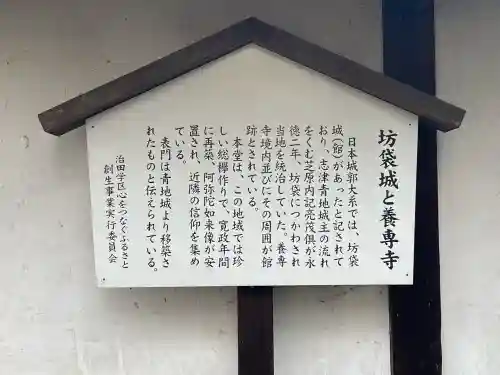 坊袋城と養専寺
日本城郭大系では、坊袋
城(館)があったと記されて
おり、志津青地城主の流れ
をくむ芝原内記亮茂倶が永
徳二年、坊袋につかわされ
当地を統治していた。養専
寺境内並びにその周囲が館
跡とされている。
本堂は、この地域では珍
しい総欅作りで、寛政年間
に再築、阿弥陀如来像が安
置され、近隣の信仰を集め
ている。
表門は青地城より移築さ
れたものと伝えられている。
治田学区心をつなぐふるさと
創生事業実行委員会